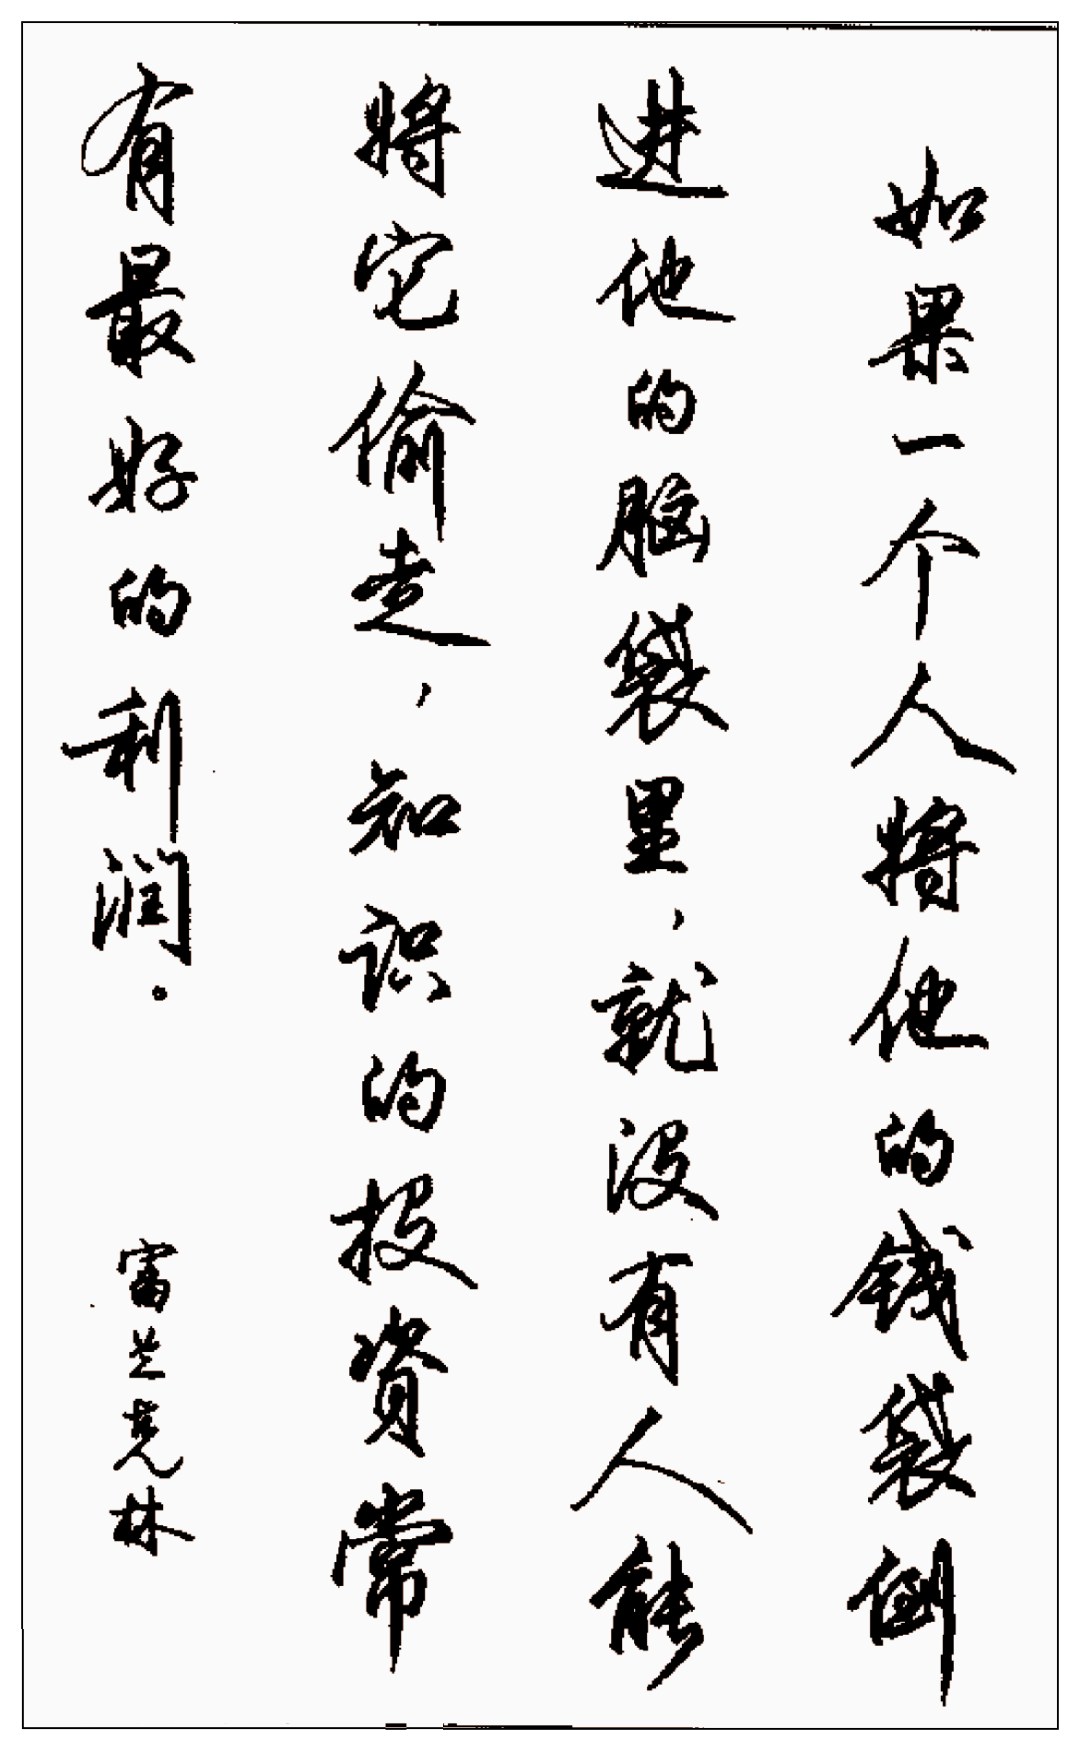 如果一个人将他的钱袋倒
进他的脑袋里，就没有人能
将它偷走，知识的投资常
有最好的利润。
富兰克林